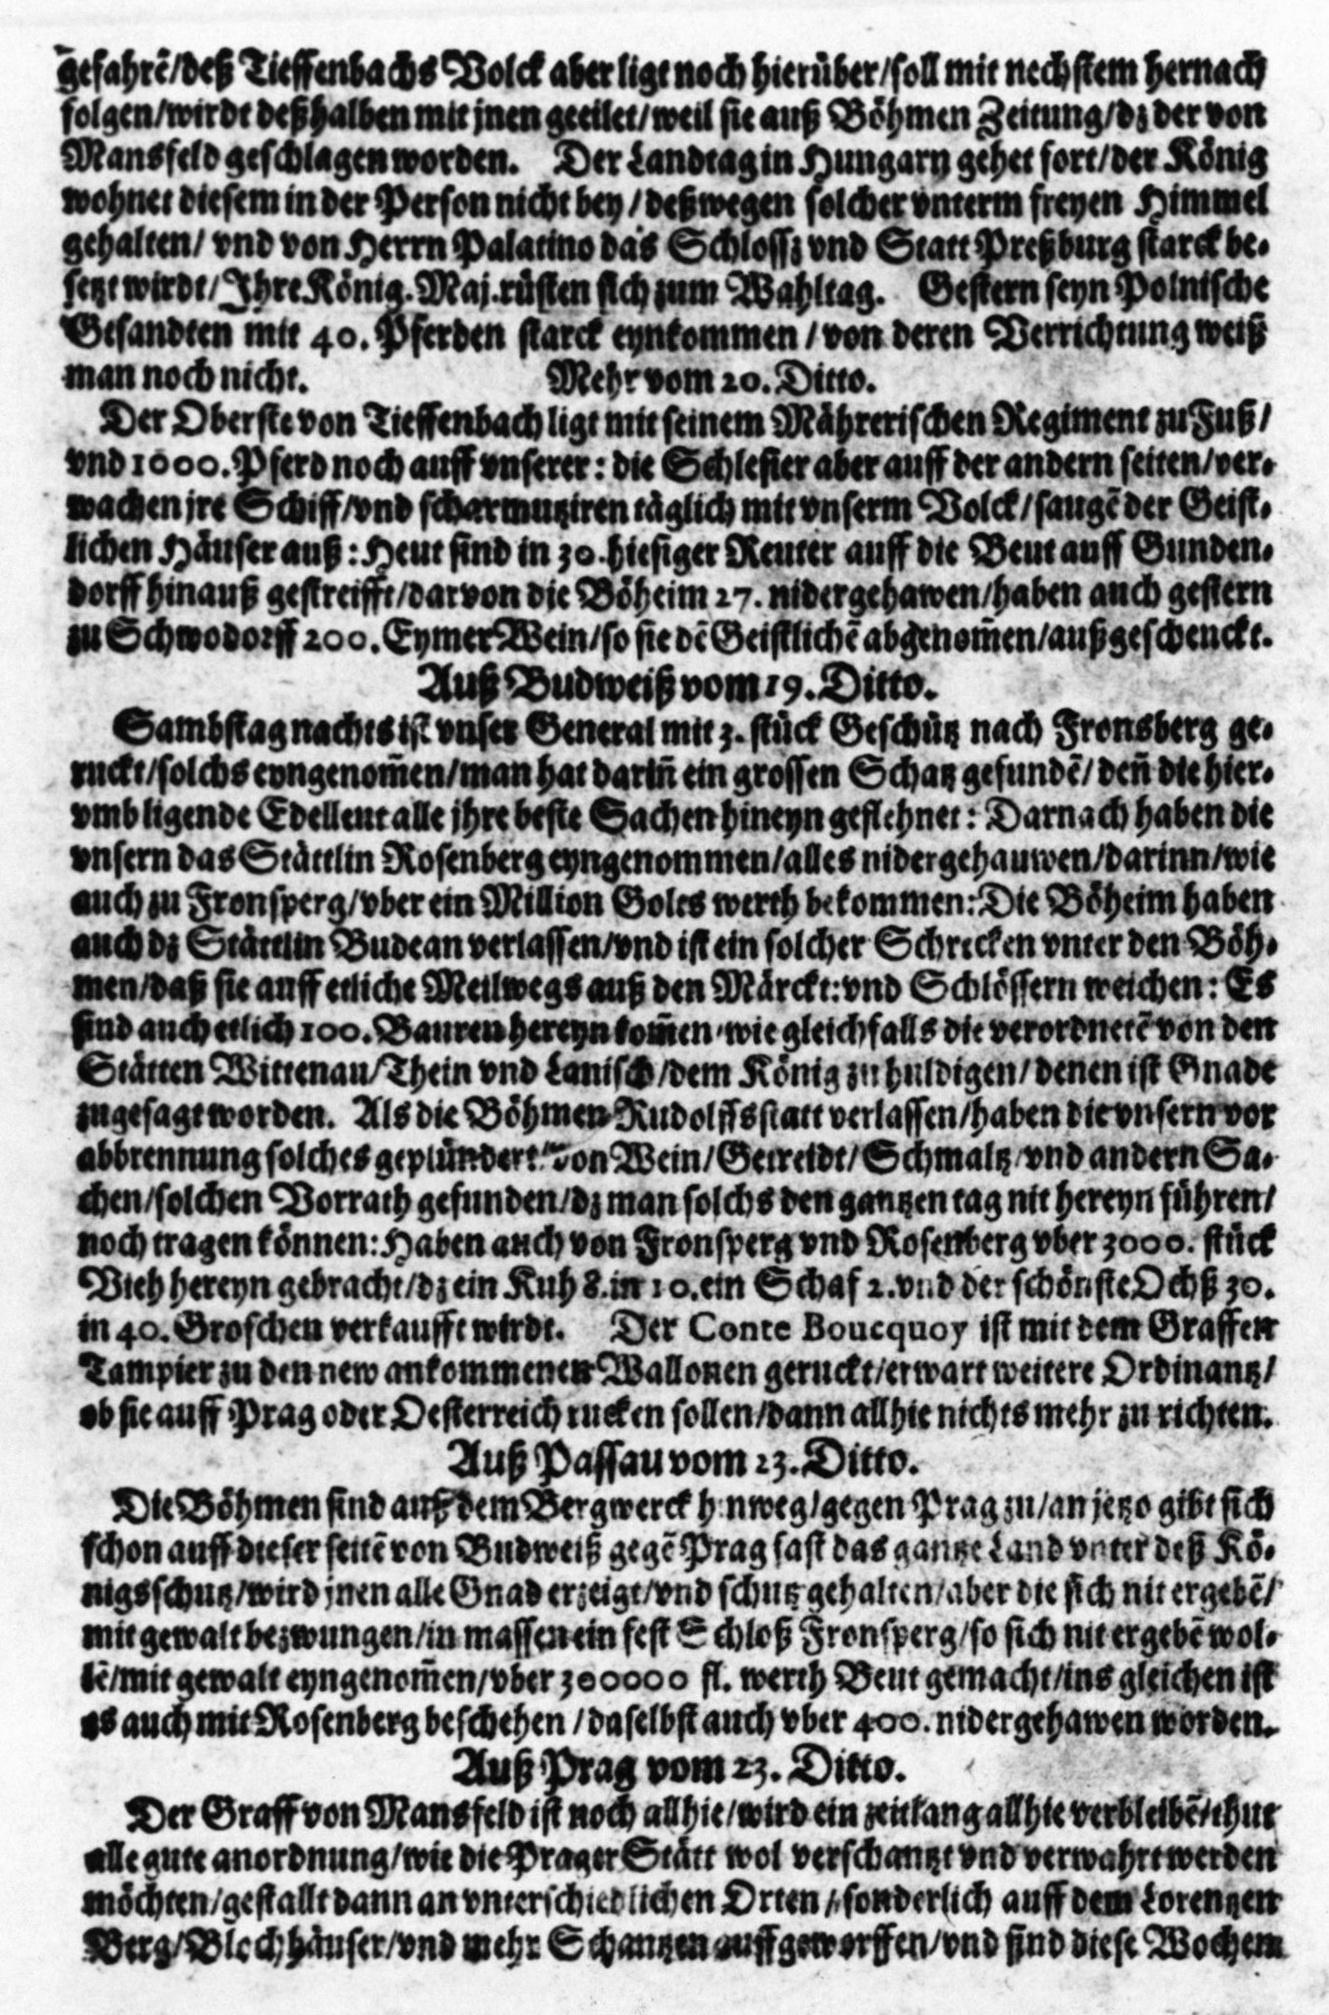 gefahrẽ/deß Tieffenbachs Volck aber ligt noch hierüber/soll mit nechstem hernach
folgen/wirdt deßhalben mit jnen geeilet/weil sie auß Böhmen Zeitung/dz der von
Mansfeld geschlagen worden. Der Landtag in Hungarn gehet fort/der König
wohnet diesem in der Person nicht bey/deßwegen solcher vnterm freyen Himmel
gehalten/ vnd von Herrn Palatino das Schlossz vnd Statt Preßburg starck be-
setzt wirdt/Ihre König. Maj. rüsten sich zum Wahltag. Gestern seyn Polnische
Gesandten mit 40. Pferden starck eynkommen/von deren Verrichtung weiß
man noch nicht. Mehr vom 20. Ditto.
Der Oberste von Tieffenbach ligt mit seinem Mährerischen Regiment zu Fuß/
vnd 1000. Pferd noch auff vnserer: die Schlesier aber auff der andern seiten/ver-
wachen jre Schiff/vnd scharmutziren täglich mit vnserm Volck/saugẽ der Geist-
lichen Häuser auß: Heut sind in 30. hiesiger Reuter auff die Beut auff Gunden-
dorff hinauß gestreifft/darvon die Böheim 27. nidergehawen/haben auch gestern
zu Schwodorff 200. Eymer Wein/so sie dẽ Geistlichẽ abgenom̃en/außgeschenckt.
Auß Budweiß vom 19. Ditto.
Sambstag nachts ist vnser General mit 3. stück Geschütz nach Fronsberg ge-
ruckt/solchs eyngenom̃en/man hat darin̄ ein grossen Schatz gefundẽ/den̄ die hier-
vmb ligende Edelleut alle jhre beste Sachen hineyn geflehnet: Darnach haben die
vnsern das Stättlin Rosenberg eyngenommen/alles nidergehauwen/darinn/wie
auch zu Fronsperg/vber ein Million Golts werth bekommen: Die Böheim haben
auch dz Stättlin Budean verlassen/vnd ist ein solcher Schrecken vnter den Böh-
men/daß sie auff etliche Meilwegs auß den Märckt: vnd Schlössern weichen: Es
sind auch etlich 100. Bauren hereyn kom̃en/wie gleichfalls die verordnetẽ von den
Stätten Wittenau/Thein vnd Lanisch/dem König zu huldigen/denen ist Gnade
zugesagt worden. Als die Böhmen Rudolffsstatt verlassen/haben die vnsern vor
abbrennung solches geplündert/von Wein/Getreidt/Schmaltz vnd andern Sa-
chen/solchen Vorrath gefunden/dz man solchs den gantzen tag nit hereyn führen/
noch tragen können: Haben auch von Fronsperg vnd Rosenberg vber 3000. stück
Vieh hereyn gebracht/dz ein Kuh 8. in 10. ein Schaf 2. vnd der schönste Ochß 30.
in 40. Groschen verkaufft wirdt. Der Conte Boucquoy ist mit dem Graffen
Tampier zu den new ankommenen Wallonen geruckt/erwart weitere Ordinantz/
ob sie auff Prag oder Oesterreich rucken sollen/dann allhie nichts mehr zu richten.
Auß Passau vom 23. Ditto.
Die Böhmen sind auß dem Bergwerck hinweg/gegen Prag zu/an jetzo gibt sich
schon auff dieser seitẽ von Budweiß gegẽ Prag fast das gantze Land vnter deß Kö-
nigs schutz/wird jnen alle Gnad erzeigt/vnd schutz gehalten/aber die sich nit ergebẽ/
mit gewalt bezwungen/in massen ein fest Schloß Fronsperg/so sich nit ergebẽ wol-
lẽ/mit gewalt eyngenom̃en/vber 300000 fl. werth Beut gemacht/ins gleichen ist
es auch mit Rosenberg beschehen/daselbst auch vber 400. nidergehawen worden.
Auß Prag vom 23. Ditto.
Der Graff von Mansfeld ist noch allhie/wird ein zeitlang allhie verbleibẽ/thut
alle gute anordnung/wie die Prager Stätt wol verschantzt vnd verwahrt werden
möchten/gestallt dann an vnterschiedlichen Orten/sonderlich auff dem Lorentzen
Berg/Blochhäuser/vnd mehr Schantzen auffgeworffen/vnd sind diese Wochen